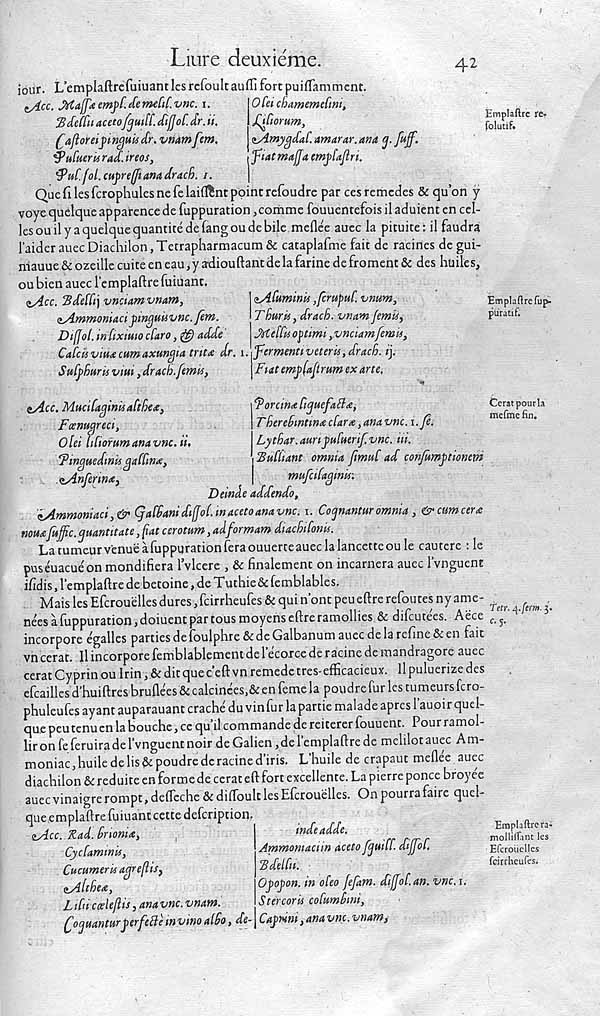 Liure deuxiéme. 42
iour. L'emplastre suiuant les resoult aussi fort puissamment.
Acc. Massæ empl. de melil. vnc. 1.
Bdellii aceto squill. dissol. dr. ii.
Castorei pinguis dr. vnam sem.
Pulueris rad. ireos,
Pul. fol. cupressi ana drach. 1.
Olei chamemelini,
Liliorum,
Amygdal. amarar. ana q. suff.
Fiat massa emplastri.
Emplastre re-
solutif.
Que si les scrophules ne se laissent point resoudre par ces remedes & qu'on y
voye quelque apparence de suppuration, comme souuentefois il aduient en cel-
les ou il y a quelque quantité de sang ou de bile meslée auec la pituite: il faudra
l'aider auec Diachilon, Tetrapharmacum & cataplasme fait de racines de gui-
mauue & ozeille cuite en eau, y adioustant de la farine de froment & des huiles,
ou bien auec l'emplastre suiuant.
Acc. Bdellij vnciam vnam,
Ammoniaci pinguis vnc. sem.
Dissol. in lixiuio claro, & adde
Calcis viuæ cum axungia tritæ dr. 1.
Sulphuris viui, drach. semis,
Aluminis, scrupul. vnum,
Thuris, drach. vnam semis,
Mellis optimi, vnciam semis,
Fermenti veteris, drach. ij.
Fiat emplastrum ex arte.
Emplastre sup-
puratif.
Acc. Mucilaginis altheæ,
Fœnugreci,
Olei liliorum ana vnc. ii.
Pinguedinis gallinæ,
Anserinæ,
Porcinæ liquefactæ,
Therebintinæ claræ, ana vnc. 1. se.
Lythar. auri pulueris. vnc. iii.
Bulliant omnia simul ad consumptionem
muscilaginis:
Cerat pour la
mesme fin.
Deinde addendo,
Ammoniaci, & Galbani dissol. in aceto ana vnc. 1. Coquantur omnia, & cum cera
noua suffic. quantitate, fiat cerotum, ad formam diachilonis.
La tumeur venuë à suppuration sera ouuerte auec la lancette ou le cautere: le
pus éuacué on mondifiera l'vlcere, & finalement on incarnera auec l'vnguent
isidis, l'emplastre de betoine, de Tuthie & semblables.
Mais les Escrouëlles dures, scirrheuses & qui n'ont peu estre resoutes ny ame-
nées à suppuration, doiuent par tous moyens estre ramollies & discutées. Aëce
incorpore égalles parties de soulphre & de Galbanum auec de la resine & en fait
vn cerat. Il incorpore semblablement de l'écorce de racine de mandragore auec
cerat Cyprin ou Irin, & dit que c'est vn remede tres-efficacieux. Il puluerize des
escailles d'huistres bruslées & calcinées, & en seme la poudre sur les tumeurs scro-
phuleuses ayant auparauant craché du vin sur la partie malade apres l'auoir quel-
que peu tenu en la bouche, ce qu'il commande de reiterer souuent. Pour ramol-
lir on se seruira de l'vnguent noir de Galien, de l'emplastre de melilot auec Am-
moniac, huile de lis & poudre de racine d'iris. L'huile de crapaut meslée auec
diachilon & reduite en forme de cerat est fort excellente. La pierre ponce broyée
auec vinaigre rompt, desseche & dissoult les Escrouëlles. On pourra faire quel-
que emplastre suiuant cette description.
Tetr. 4. serm. 3.
c. 5.
Acc. Rad. brioniæ,
Cyclaminis,
Cucumeris agrestis,
Altheæ,
Lilii cœlestis, ana vnc. vnam.
Coquantur perfectè in vino albo, de-
inde adde.
Ammoniaci in aceto squill. dissol.
Bdellii.
Opopon. in oleo sesam. dissol. an. vnc. 1.
Stercoris columbini,
Caprini, ana vnc. vnam,
Emplastre ra-
mollissant les
Escrouelles
scirrheuses.